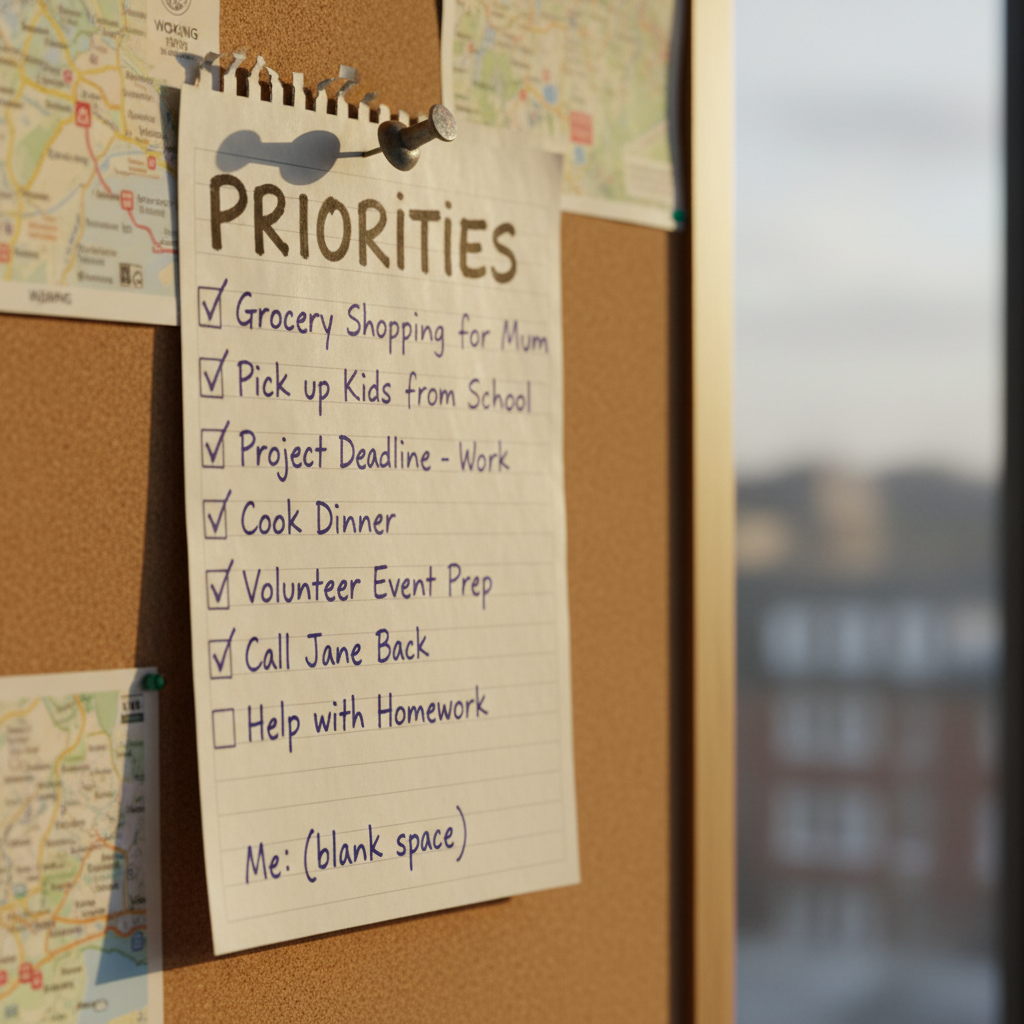 WOKING
PRIORITIES
Grocery Shopping for Mum
Pick up Kids from School
Project Deadline - Work
Cook Dinner
Volunteer Event Prep
Call Jane Back
Help with Homework
Me: (blank space)